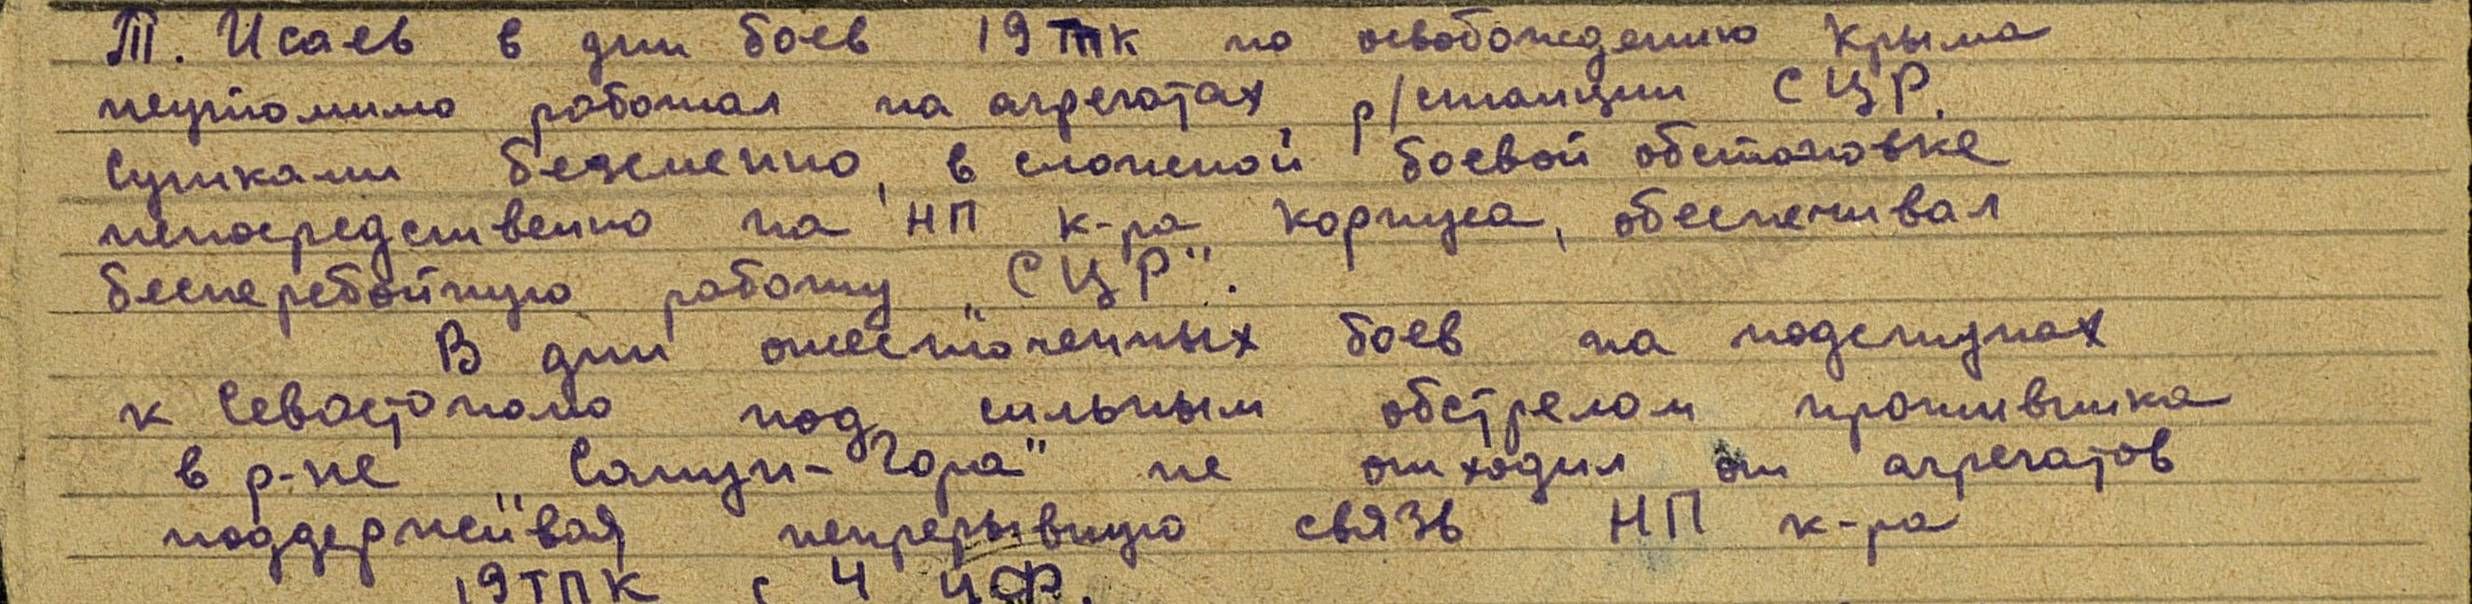 Т. Исаев в дни боев 19 ТПК по освобождению Крыма
неутомимо работал на агрегатах р/станции СЦР.
Сутками бессменно, в сложной боевой обстановке
непосредственно на НП к-ра корпуса, обеспечивал
бесперебойную работу „СЦР".
В дни ожесточенных боев на подступах
к Севастополю под сильным обстрелом противника
в р-не „Сапун-Гора" не отходил от агрегатов
поддерживая непрерывную связь НП к-ра
19 ТПК с 4 УФ.